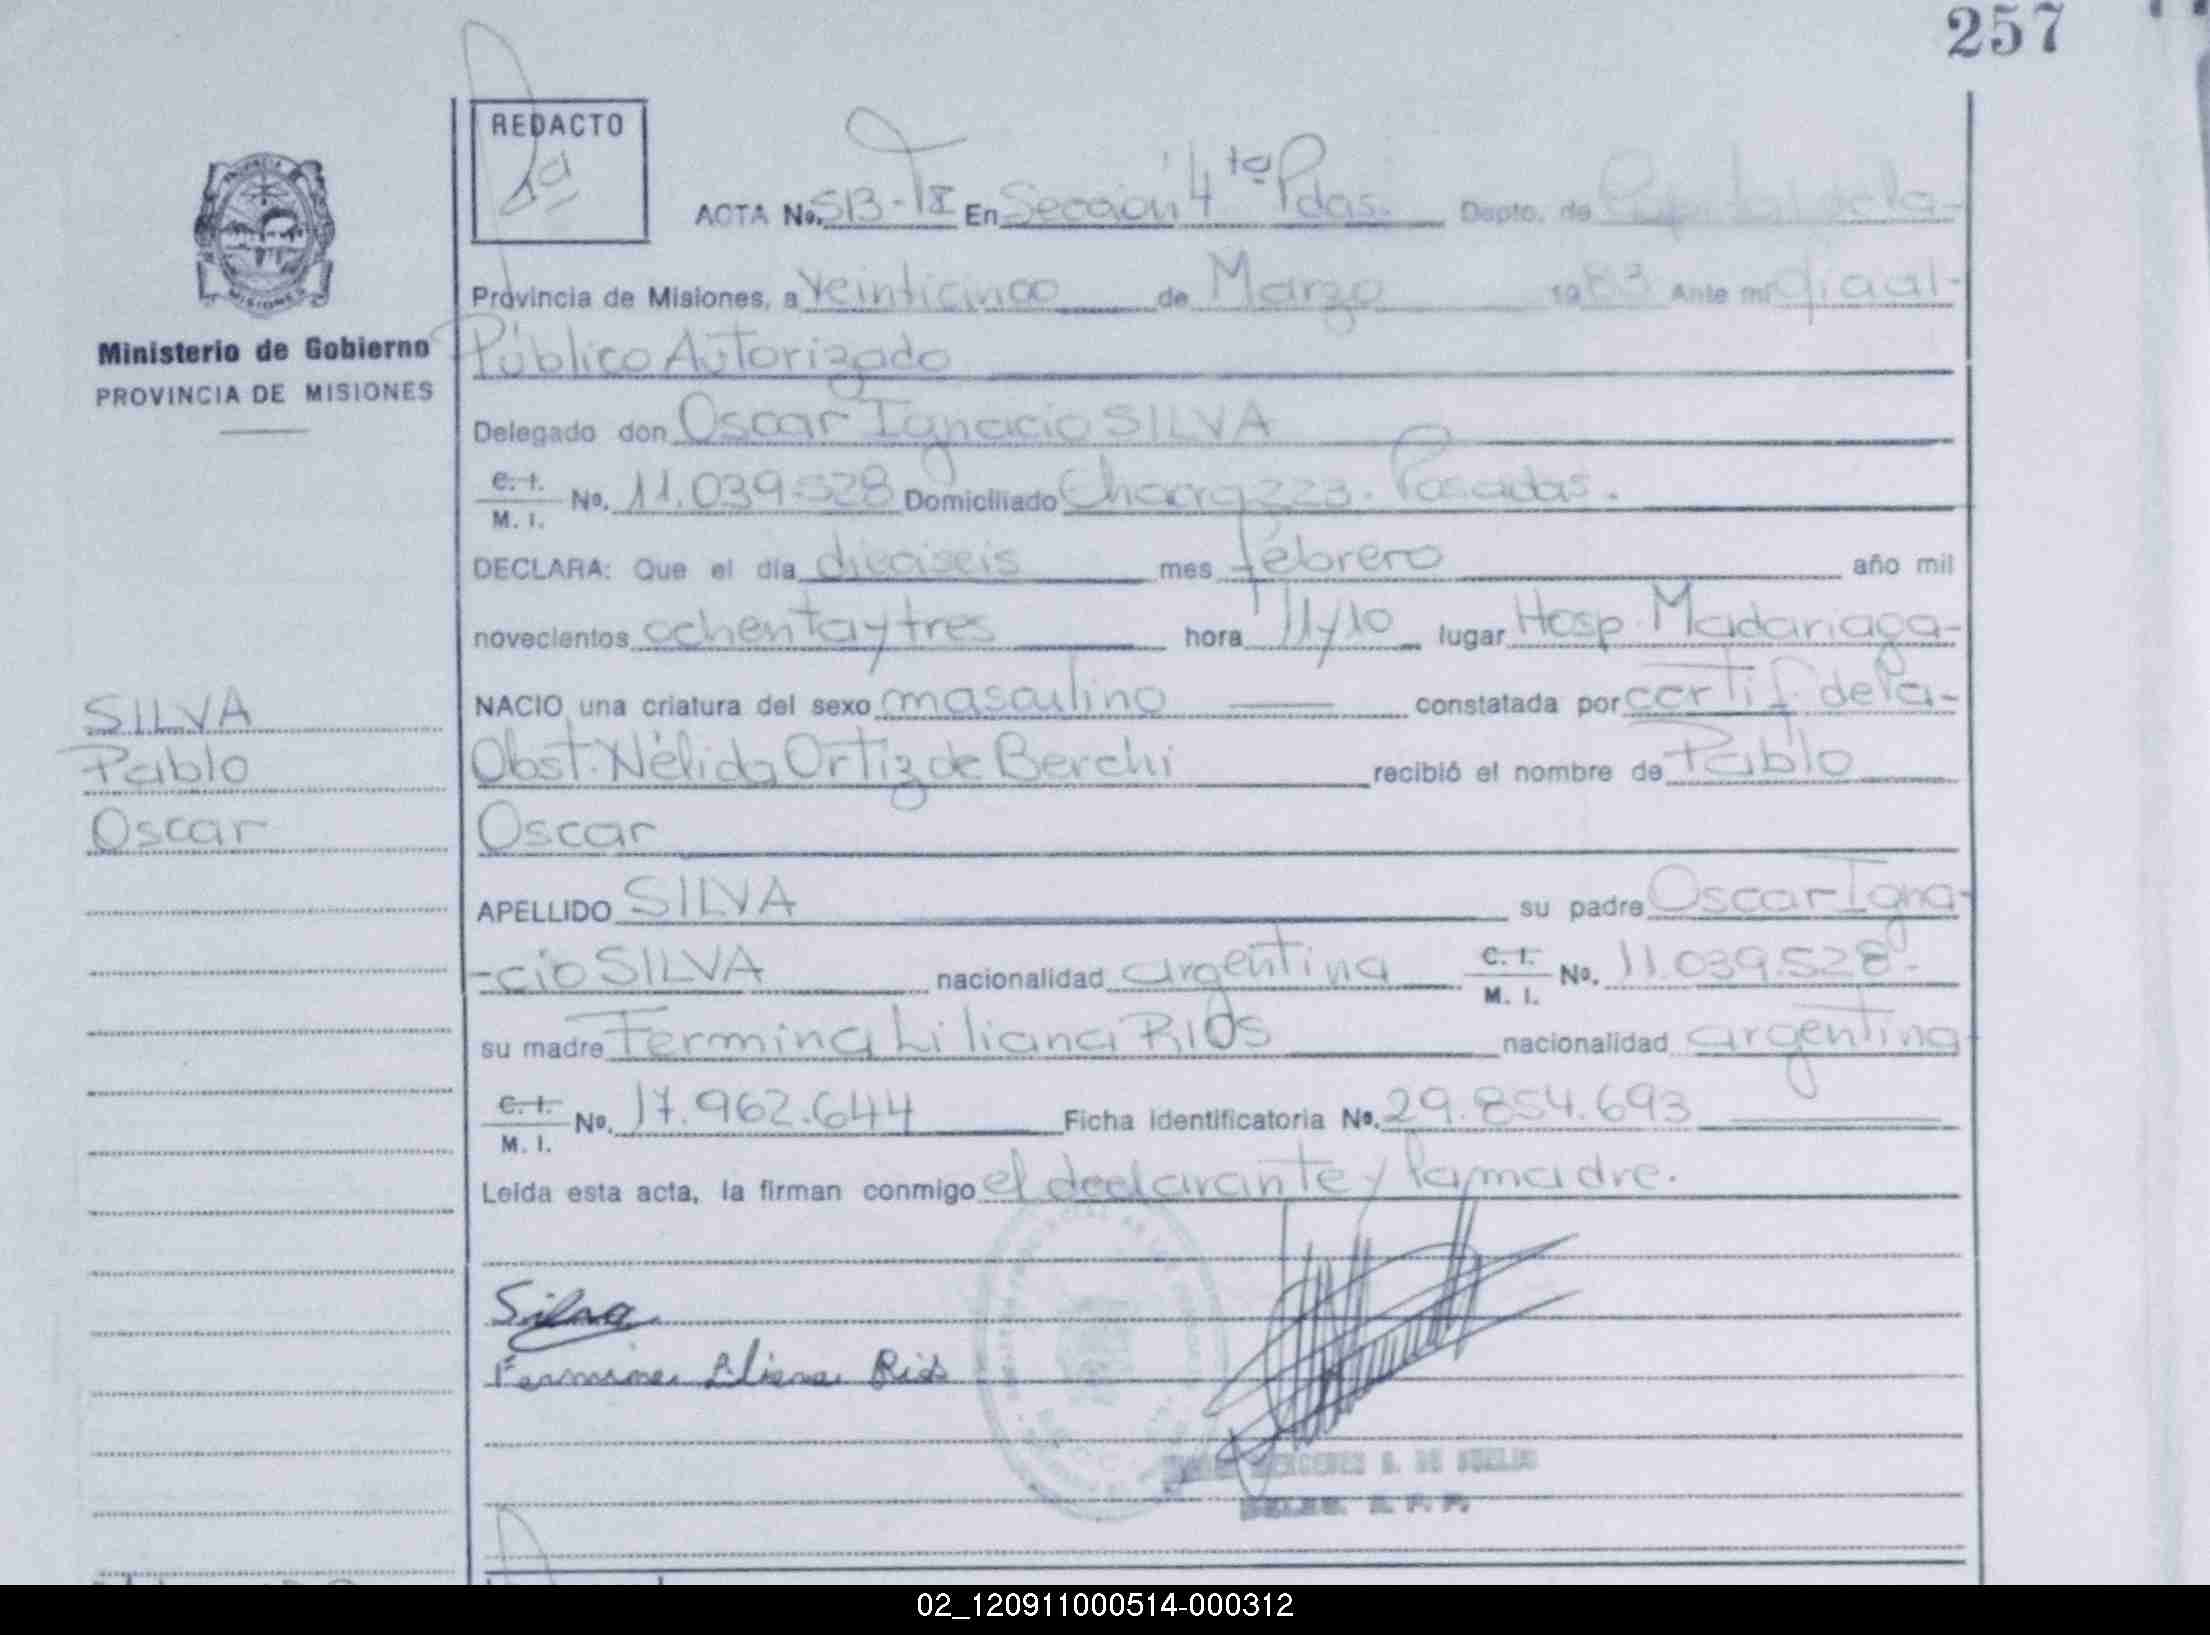 257
REDACTO
1ª
ACTA No. 513-TII En Sección 4ta Pdas. Depto. de Capital de la-
Provincia de Misiones, a Veinticinco de Marzo 1983 Ante mi Oficial-
Ministerio de Gobierno
Público Autorizado
PROVINCIA DE MISIONES
Delegado don Oscar Ignacio SILVA
C. I.
M. I. No. 11.039.528 Domiciliado 223. Posadas.
DECLARA: Que el día dieciseis mes febrero año mil
novecientos ochenta y tres hora 11y10 lugar Hosp. Madariaga-
NACIO una criatura del sexo masculino constatada por certif. de la-
SILVA
Pablo
Obst. Nélida Ortiz de Berchi recibió el nombre de Pablo
Oscar
Oscar
APELLIDO SILVA su padre Oscar Igna-
-cio SILVA nacionalidad argentina C. I.
M. I. No. 11.039.528-
su madre Fermina Liliana RIOS nacionalidad argentina
C. I.
M. I. No. 17.962.644 Ficha identificatoria No. 29.854.693
Leida esta acta, la firman conmigo el declarante y la madre.
Silva
Fermina Liliana Rios
02_120911000514-000312